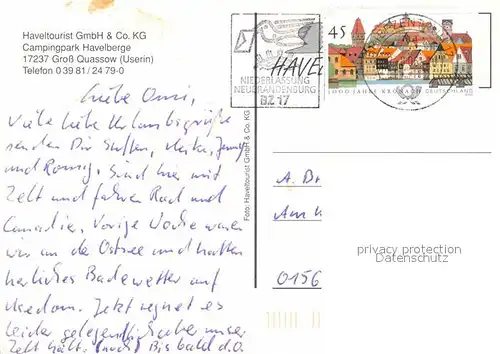 Haveltourist GmbH & Co. KG
Campingpark Havelberge
17237 Groß Quassow (Userin)
Telefon 0 39 81 / 24 79-0
Liebe Omi,
Viele liebe Urlaubsgrüße
senden Dir Steffen, Heike, Jenny
und Ronny. Sind hier mit
Zelt und fahren Rad und
Canadie. Vorige Woche waren
wir an die Ostsee und hatten
herrliches Badewetter auf
Usedom. Jetzt regnet es
leider gelegentlich aber unser
Zelt hält. (noch) Bis bald d.O.
Foto: Haveltourist GmbH & Co. KG
HAVEL
NIEDERLASSUNG
NEUBRANDENBURG
BZ 17
45
1000 JAHRE KRONACH DEUTSCHLAND
A. Br
Am
0156
privacy protection
Datenschutz